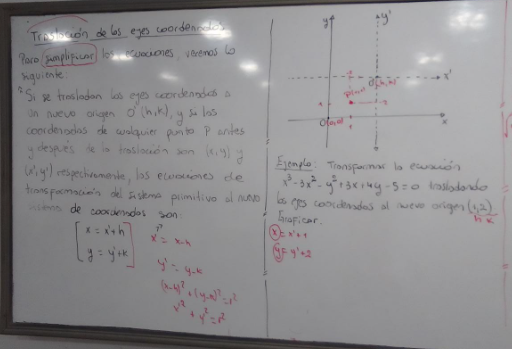 Traslación de los ejes coordenados
Para simplificar las ecuaciones, veremos lo
siguiente:
Si se trasladan los ejes coordenados a
un nuevo origen O'(h,k), y si las
coordenadas de cualquier punto P antes
y después de la traslación son (x,y) y
(x',y') respectivamente, las ecuaciones de
transformación del sistema primitivo al nuevo
sistema de coordenadas son:
x = x'+h
y = y'+k
x' = x-h
y' = y-k
(x-h)² + (y-k)² = r²
x'² + y'² = r²
y
y'
x'
O'(h,k)
O(0,0)
x
Ejemplo: Transformar la ecuación
x³-3x²-y²+3x+4y-5=0 trasladando
los ejes coordenados al nuevo origen (1,2)
h k
Graficar.
x = x'+1
y = y'+2